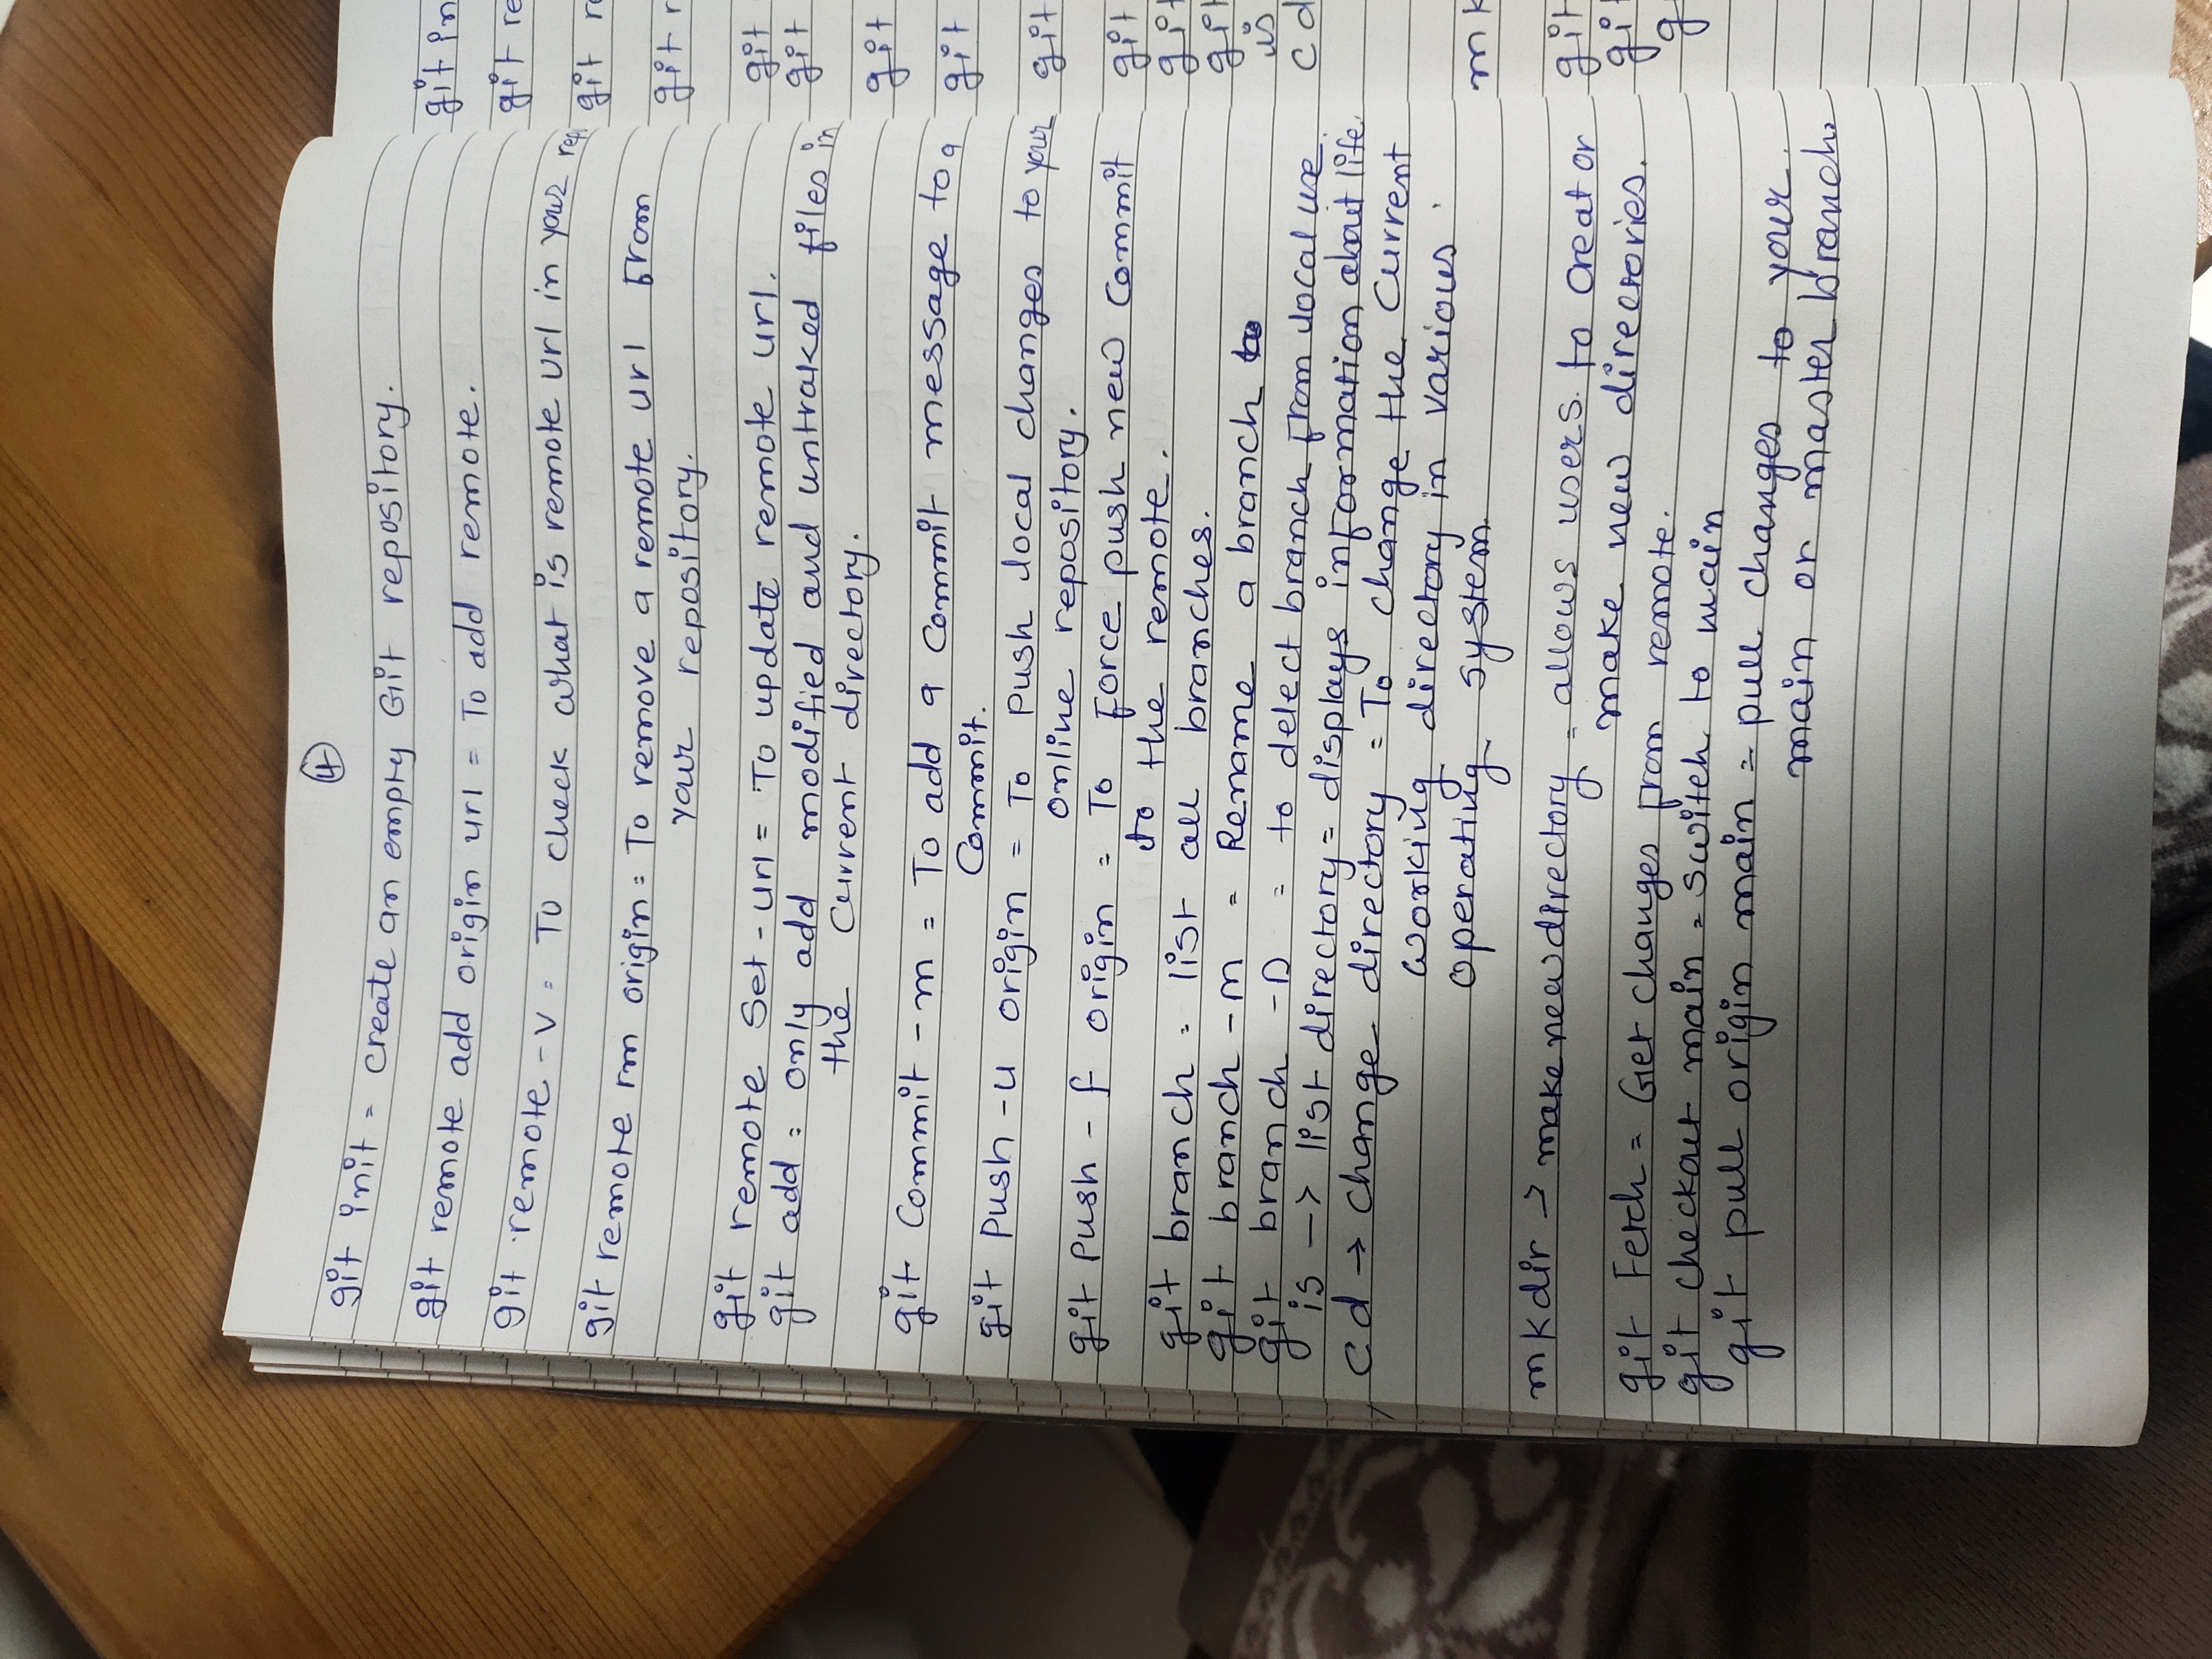 4
git init = create an empty Git repository.
git remote add origin url = To add remote.
git remote -v = To check what is remote url in your rep
git remote rm origin = To remove a remote url From
your repository.
git remote set-url = To update remote url.
git add = only add modified and untraked files in
the current directory.
git commit -m = To add a commit message to a
commit.
git push -u origin = To push local changes to your
online repository.
git push -f origin = To Force push new commit
to the remote.
git branch = list all branches.
git branch -m = Rename a branch
git branch -D = to delect branch from local use.
is -> list directory = displays information about life.
cd -> change directory = To change the current
working directory in various
operating system.
mkdir -> make new directory = allows users to creat or
make new directories.
git Fetch = Get changes from remote.
git checkout main = switch to main
git pull origin main = pull changes to your
main or master branch.
git in
git re
git re
git r
git
git
git
git
git
git
git
git
is
cd
mk
git
git
g